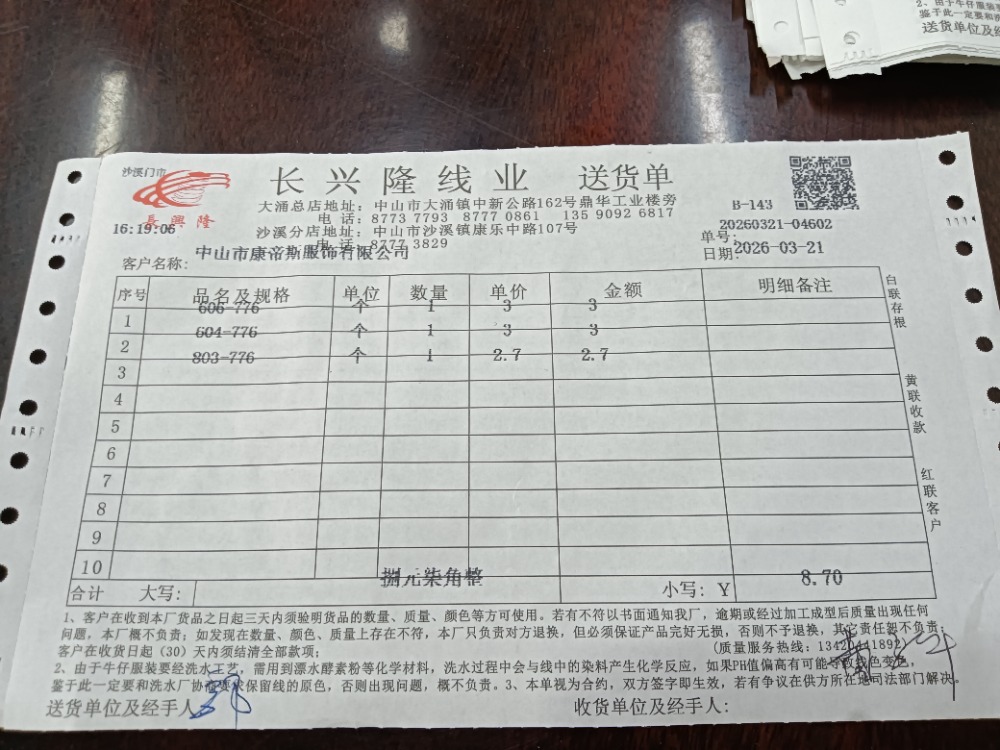 2、由于牛仔服装要
鉴于此一定要和
送货单位及经
沙溪门市
長興隆
16:19:06
长兴隆线业 送货单
大涌总店地址: 中山市大涌镇中新公路162号鼎华工业楼旁
电 话: 8773 7793 8777 0861 135 9092 6817
沙溪分店地址: 中山市沙溪镇康乐中路107号
电 话: 8777 3829
B-143
单号: 20260321-04602
日期: 2026-03-21
客户名称: 中山市康帝斯服饰有限公司
序号 品名及规格 单位 数量 单价 金额 明细备注
1 606-776 个 1 3 3
2 604-776 个 1 3 3
3 803-776 个 1 2.7 2.7
4
5
6
7
8
9
10
合计 大写: 捌元柒角整 小写: Y 8.70
白联存根
黄联收款
红联客户
1、客户在收到本厂货品之日起三天内须验明货品的数量、质量、颜色等方可使用。若有不符以书面通知我厂，逾期或经过加工成型后质量出现任何
问题，本厂概不负责；如发现在数量、颜色、质量上存在不符，本厂只负责对方退换，但必须保证产品完好无损，否则不予退换，其它责任恕不负责；
客户在收货日起（30）天内须结清全部款项； (质量服务热线: 13420411892)
2、由于牛仔服装要经洗水工艺，需用到漂水酵素粉等化学材料，洗水过程中会与线中的染料产生化学反应，如果PH值偏高有可能导致线色变色，
鉴于此一定要和洗水厂协商要求保留线的原色，否则出现问题，概不负责。3、本单视为合约，双方签字即生效，若有争议在供方所在地司法部门解决。
送货单位及经手人 收货单位及经手人: